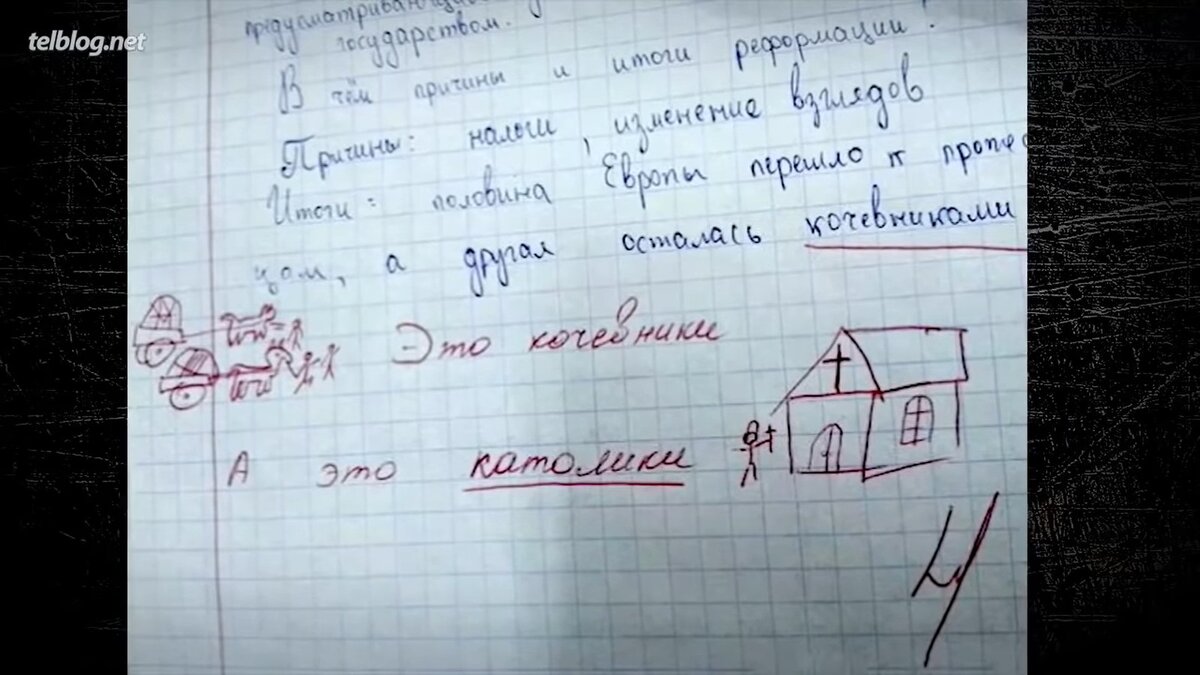 telblog.net
предусматривающ
государством.
В чём причины и итоги реформации?
Причины: налоги, изменение взглядов
Итоги: половина Европы перешло к проте
цам, а другая осталась кочевниками
Это кочевники
А это католики
4